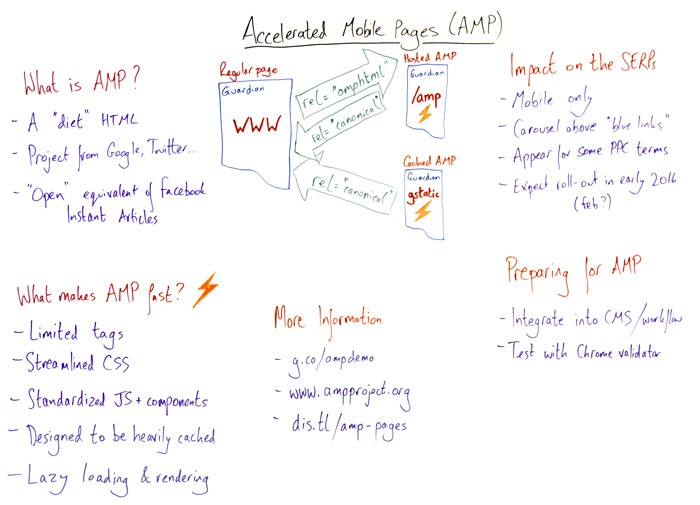 Accelerated Mobile Pages (AMP)
What is AMP?
- A "diet" HTML
- Project from Google, Twitter...
- "Open" equivalent of Facebook
Instant Articles
Regular page
Guardian
WWW
rel="amphtml"
rel="canonical"
Hosted AMP
Guardian
/amp
Cached AMP
Guardian
gstatic
rel="canonical"
Impact on the SERPs
- Mobile only
- Carousel above "blue links"
- Appear for some PPC terms
- Expect roll-out in early 2016
(feb?)
What makes AMP fast?
- Limited tags
- Streamlined CSS
- Standardized JS + components
- Designed to be heavily cached
- Lazy loading & rendering
More Information
- g.co/ampdemo
- www.ampproject.org
- dis.tl/amp-pages
Preparing for AMP
- Integrate into CMS/workflow
- Test with Chrome validator